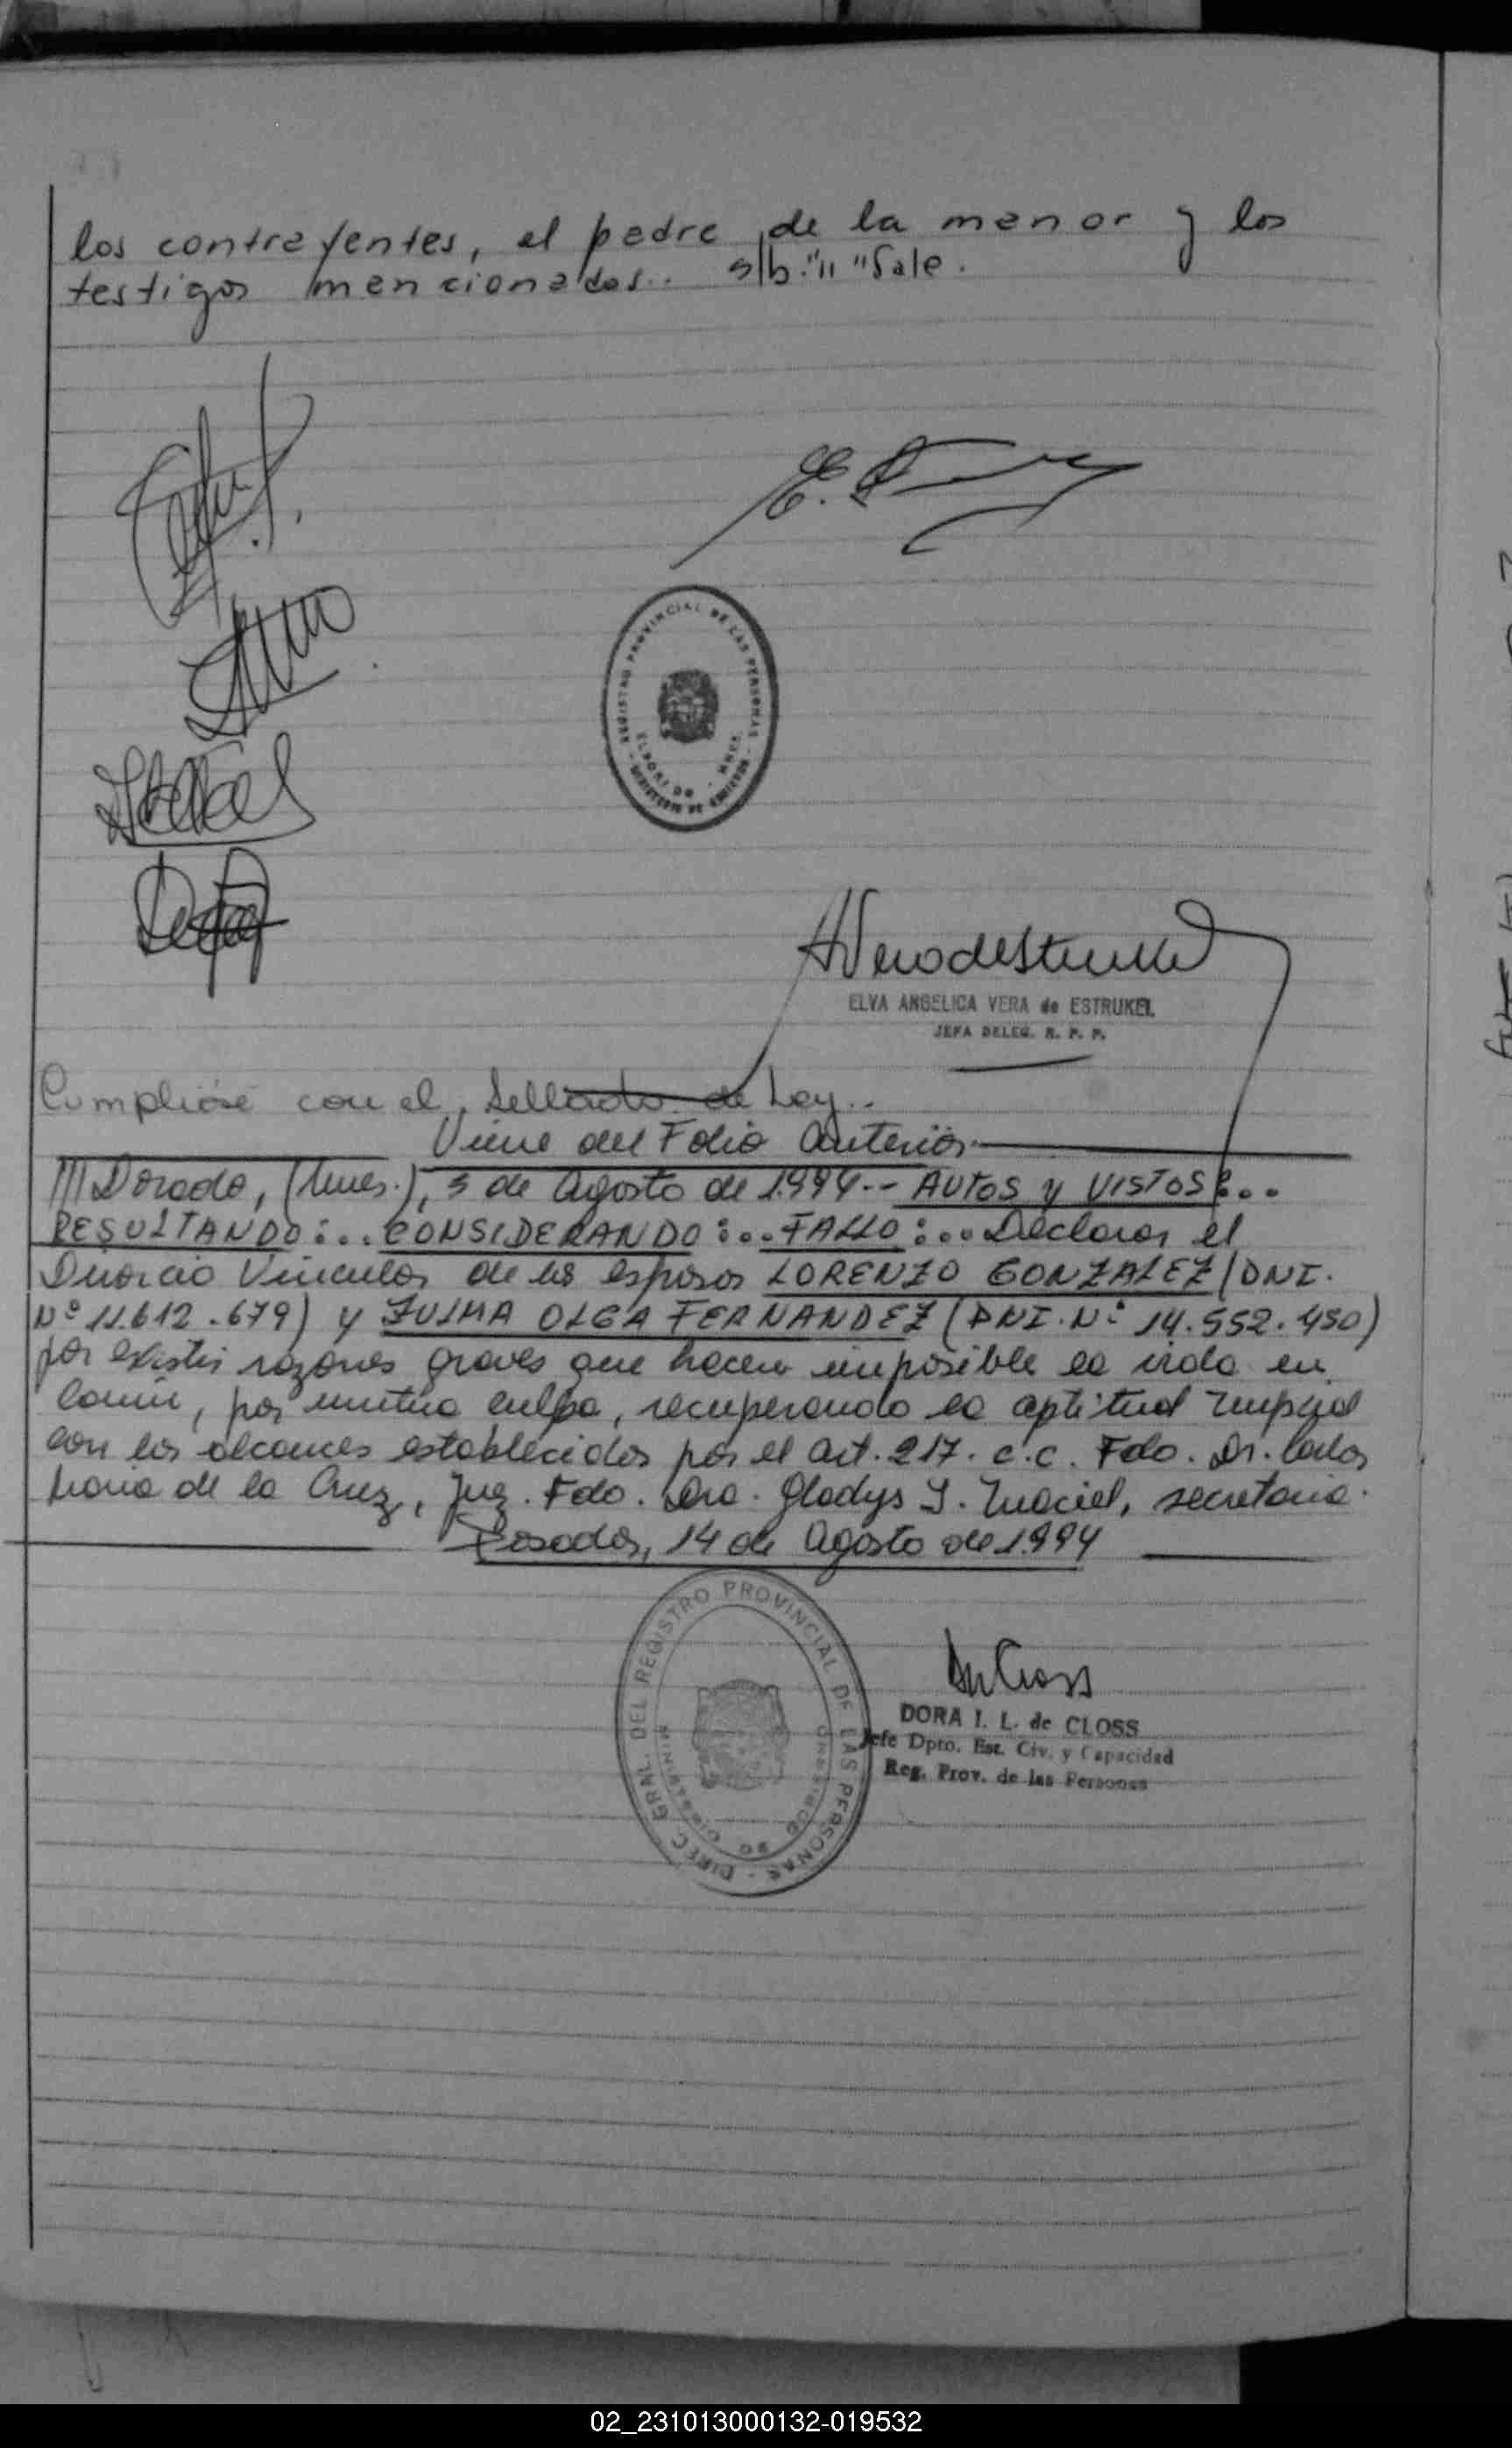 los contrayentes, el padre de la menor y los
testigos mencionados.. s/b:"11" Vale.
REGISTRO PROVINCIAL DE LAS PERSONAS
ELDORADO - MNES.
MINISTERIO DE GOBIERNO
ELVA ANGELICA VERA de ESTRUKEL
JEFA DELEG. R. P. P.
Cumplióse con el Sellado de Ley..
Viene del Folio anterior
Dorado, (Mnes.), 3 de Agosto de 1.994.-- AUTOS y VISTOS:...
RESULTANDO:... CONSIDERANDO:... FALLO:... Declarar el
Divorcio Vincular de los esposos LORENZO GONZALEZ (DNI.
Nº 11.612.679) y ZULMA OLGA FERNANDEZ (DNI. Nº 14.552.450)
por existir razones graves que hacen imposible la vida en
común, por mutua culpa, recuperando la aptitud nupcial
con los alcances establecidos por el art. 217. c.c. Fdo. Dr. Carlos
María de la Cruz, Juez. Fdo. Dra. Gladys I. Maciel, secretaria.
Posadas, 14 de Agosto de 1.994
DIREC. GRAL. DEL REGISTRO PROVINCIAL DE LAS PERSONAS
MINISTERIO DE GOBIERNO
DORA I. L. de CLOSS
Jefe Dpto. Est. Civ. y Capacidad
Reg. Prov. de las Personas
02_231013000132-019532